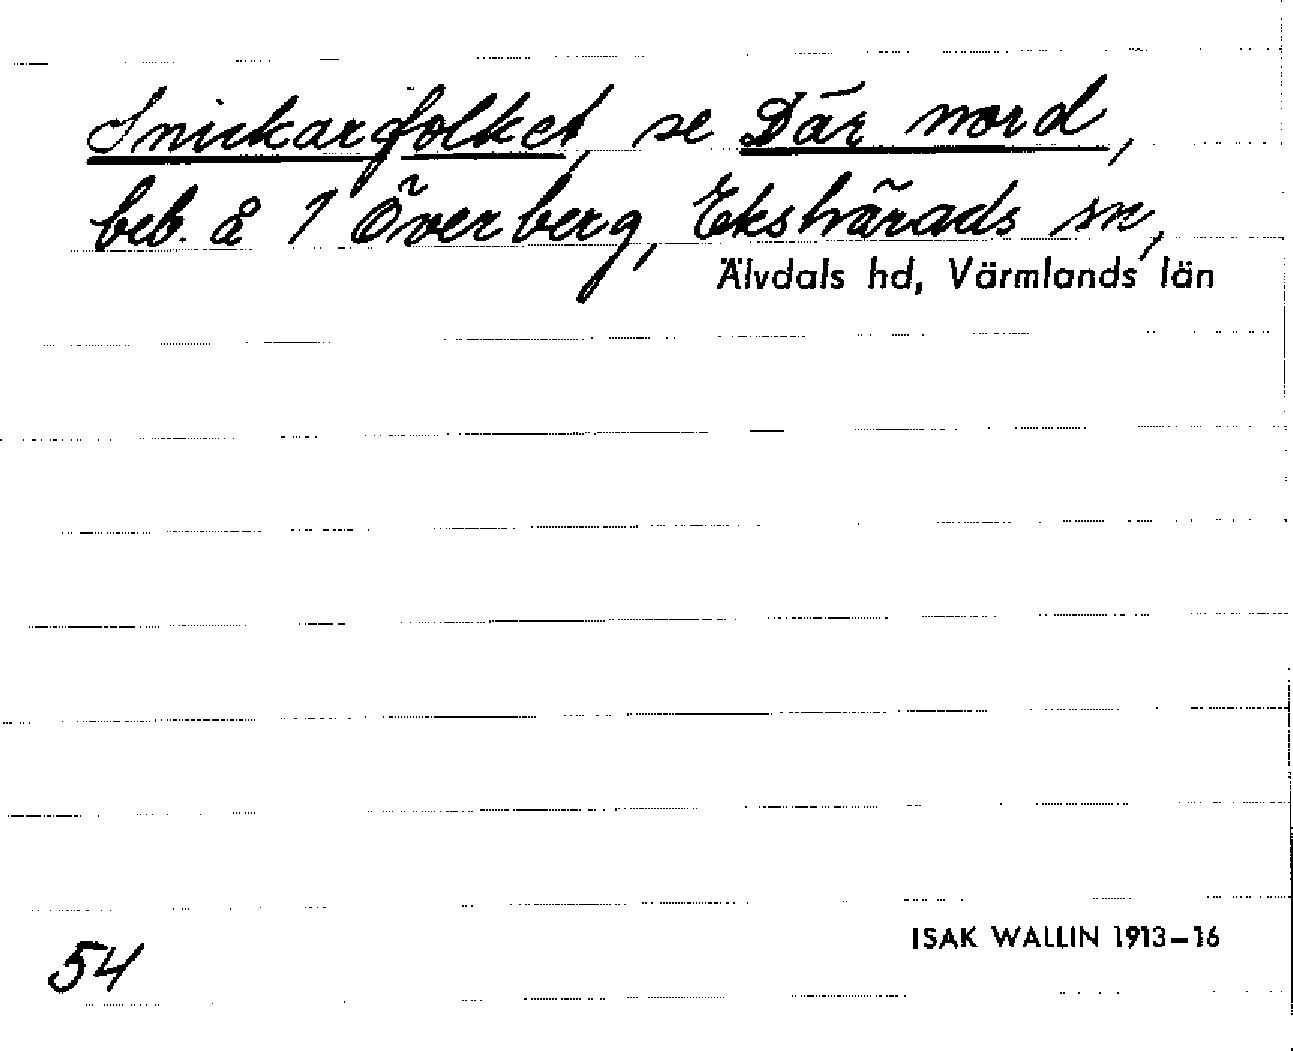 Snickarfolket, se Där nord,
beb. å 1 Överberg, Ekshärads sn,
Älvdals hd, Värmlands län
ISAK WALLIN 1913–16
54